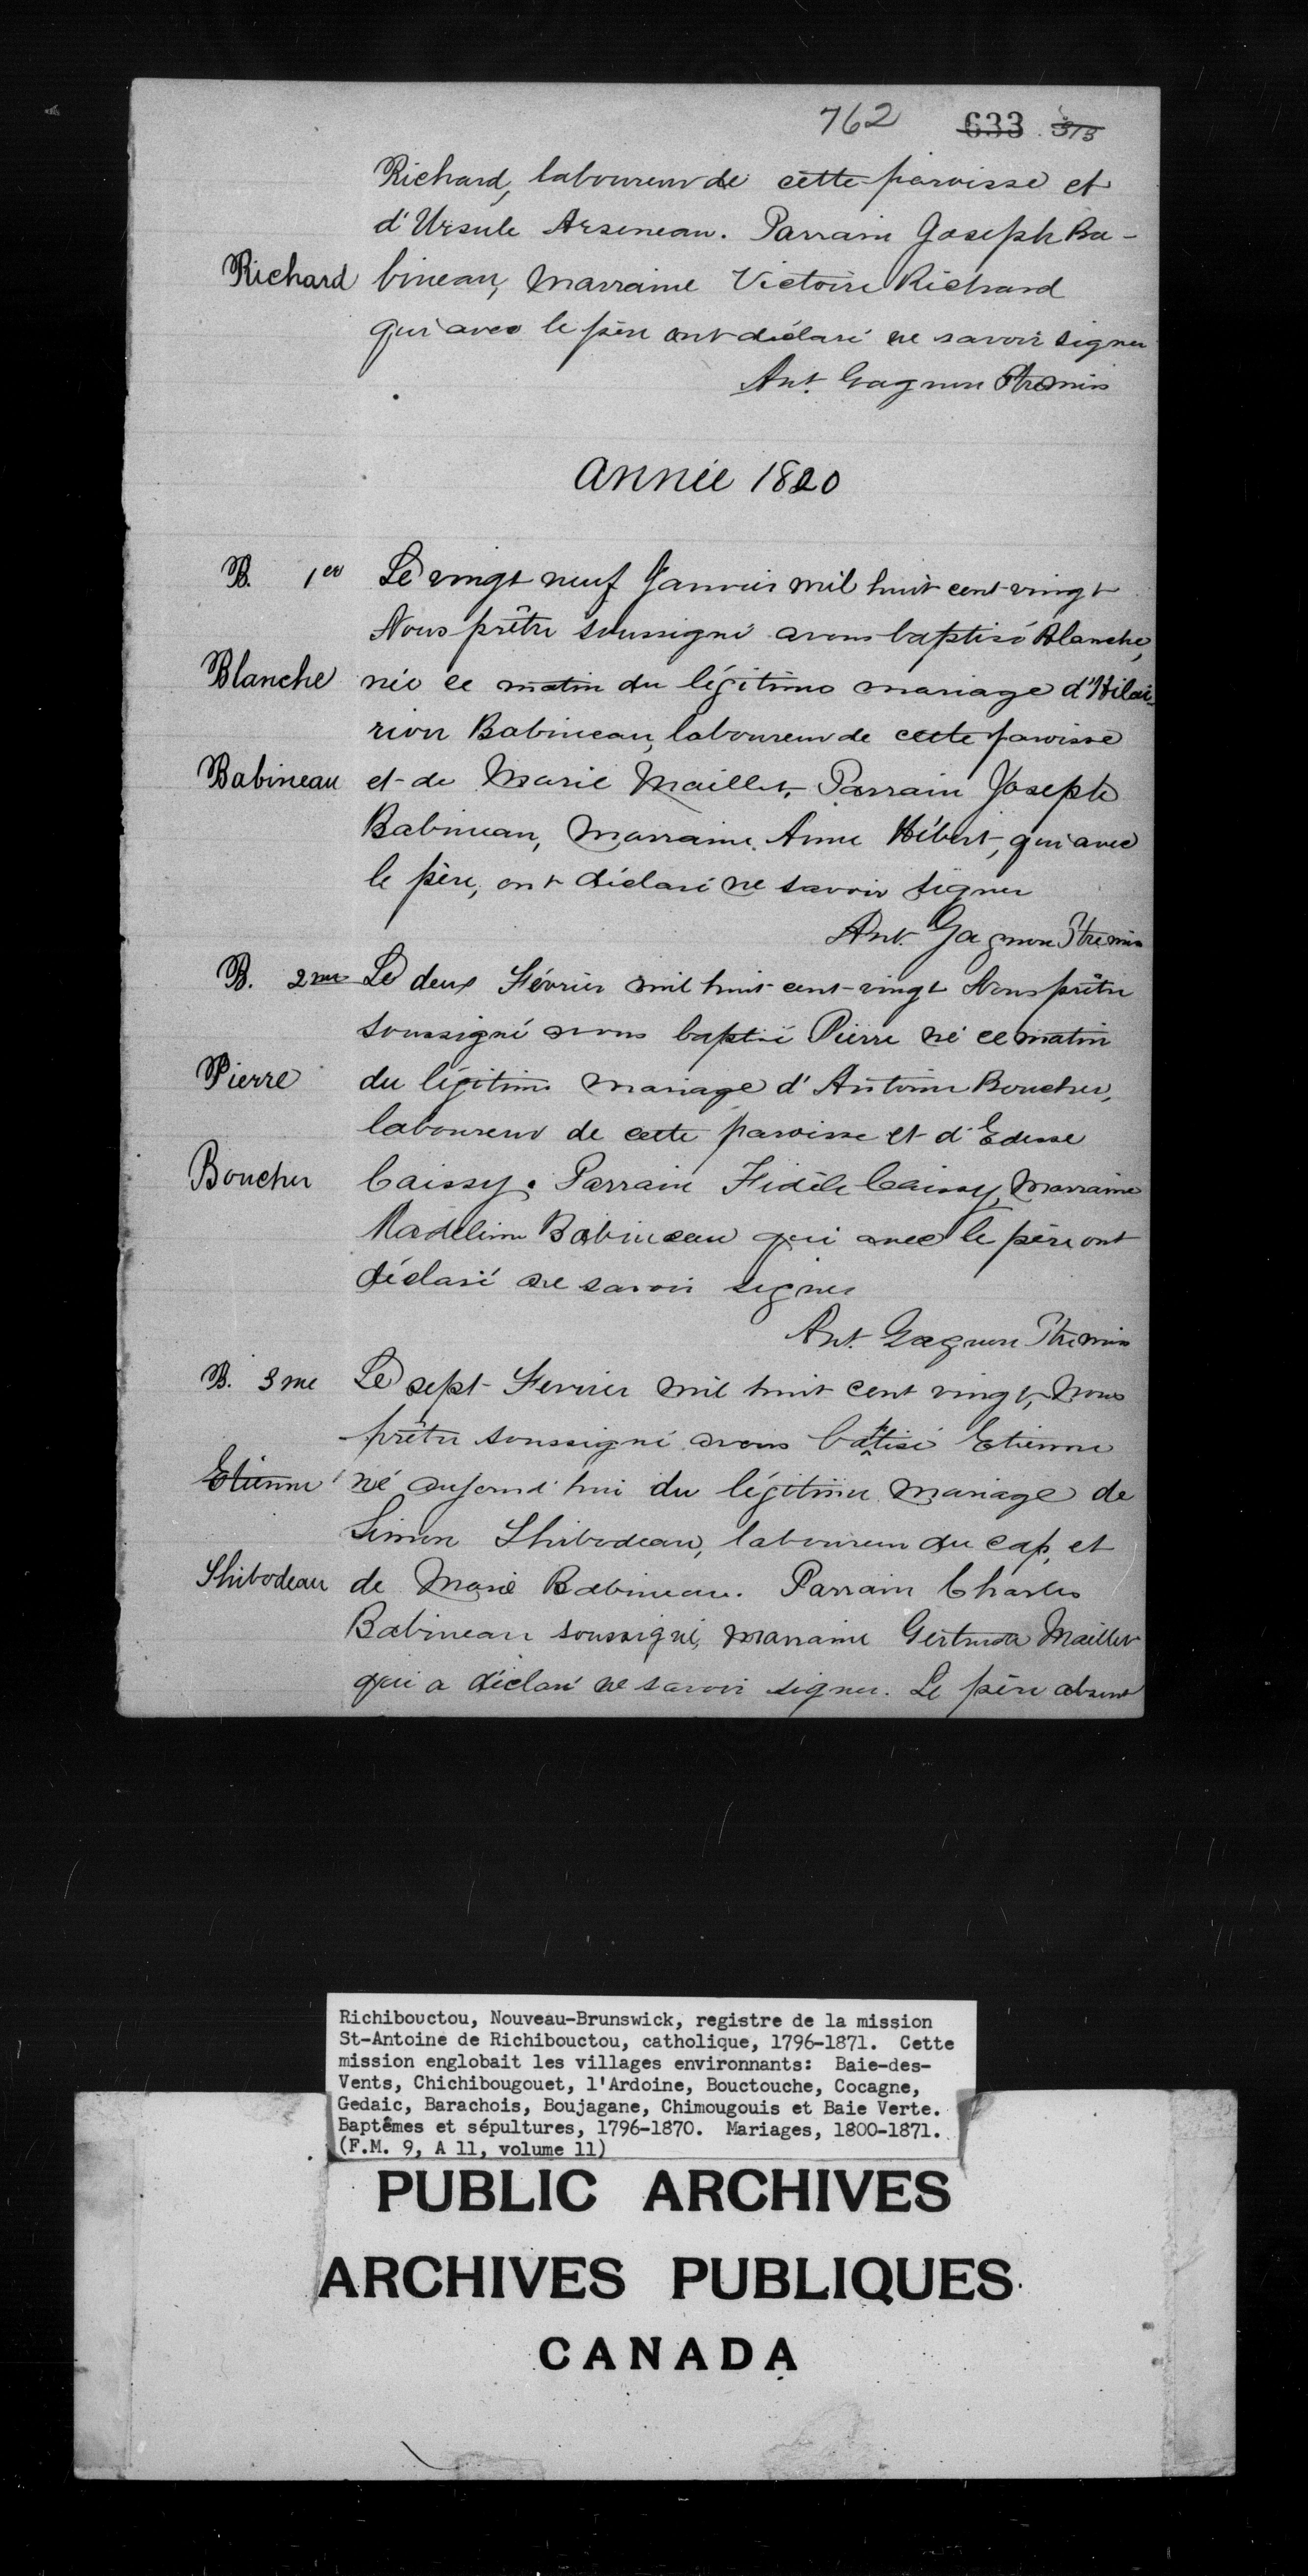 762 633 313
Richard, laboureur de cette paroisse et
d'Ursule Arseneau. Parrain Joseph Ba-
Richard bineau, Marraine Victoire Richard
qui avec le père ont déclaré ne savoir signer
Ant. Gagnon Ptre Mis
Année 1820
B. 1er Le vingt neuf Janvier mil huit cent vingt
Nous prêtre soussigné avons baptisé Blanche,
Blanche née ce matin du légitime mariage d'Hilai-
rion Babineau, laboureur de cette paroisse
Babineau et de Marie Maillet, Parrain Joseph
Babineau, Marraine Anne Hébert, qui avec
le père, ont déclaré ne savoir signer
Ant. Gagnon Ptre mis
B. 2me Le deux Février mil huit cent vingt Nous prêtre
soussigné avons baptisé Pierre né ce matin
Pierre du légitime mariage d'Antoine Boucher,
laboureur de cette paroisse et d'Edesse
Boucher Caissy. Parrain Fidèle Caissy, Marraine
Madeleine Babineau qui avec le père ont
déclaré ne savoir signer
Ant. Gagnon Ptre Mis
B. 3me Le sept Fevrier mil huit cent vingt, Nous
prêtre soussigné avons baptisé Etienne
Etienne né aujourd'hui du légitime mariage de
Simon Thibodeau, laboureur du Cap, et
Thibodeau de Marie Babineau. Parrain Charles
Babineau soussigné, Marraine Gertrude Maillet
qui a déclaré ne savoir signer. Le père absent
Richibouctou, Nouveau-Brunswick, registre de la mission
St-Antoine de Richibouctou, catholique, 1796-1871. Cette
mission englobait les villages environnants: Baie-des-
Vents, Chichibougouet, l'Ardoine, Bouctouche, Cocagne,
Gedaic, Barachois, Boujagane, Chimougouis et Baie Verte.
Baptêmes et sépultures, 1796-1870. Mariages, 1800-1871.
(F.M. 9, A 11, volume 11)
PUBLIC ARCHIVES
ARCHIVES PUBLIQUES
CANADA